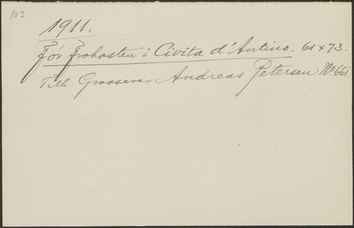 1911.
För Frokosten i Civita d'Antino. 61 x 73.
Till Grosserer Andreas Petersen